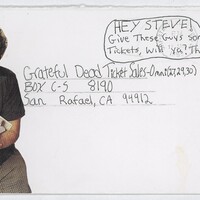 HEY STEVE!
Give These Guys Som
Tickets, Will 'Ya? Th
Grateful Dead Ticket Sales-Omni(27,29,30)
BOX C-S 8190
San Rafael, CA 94912